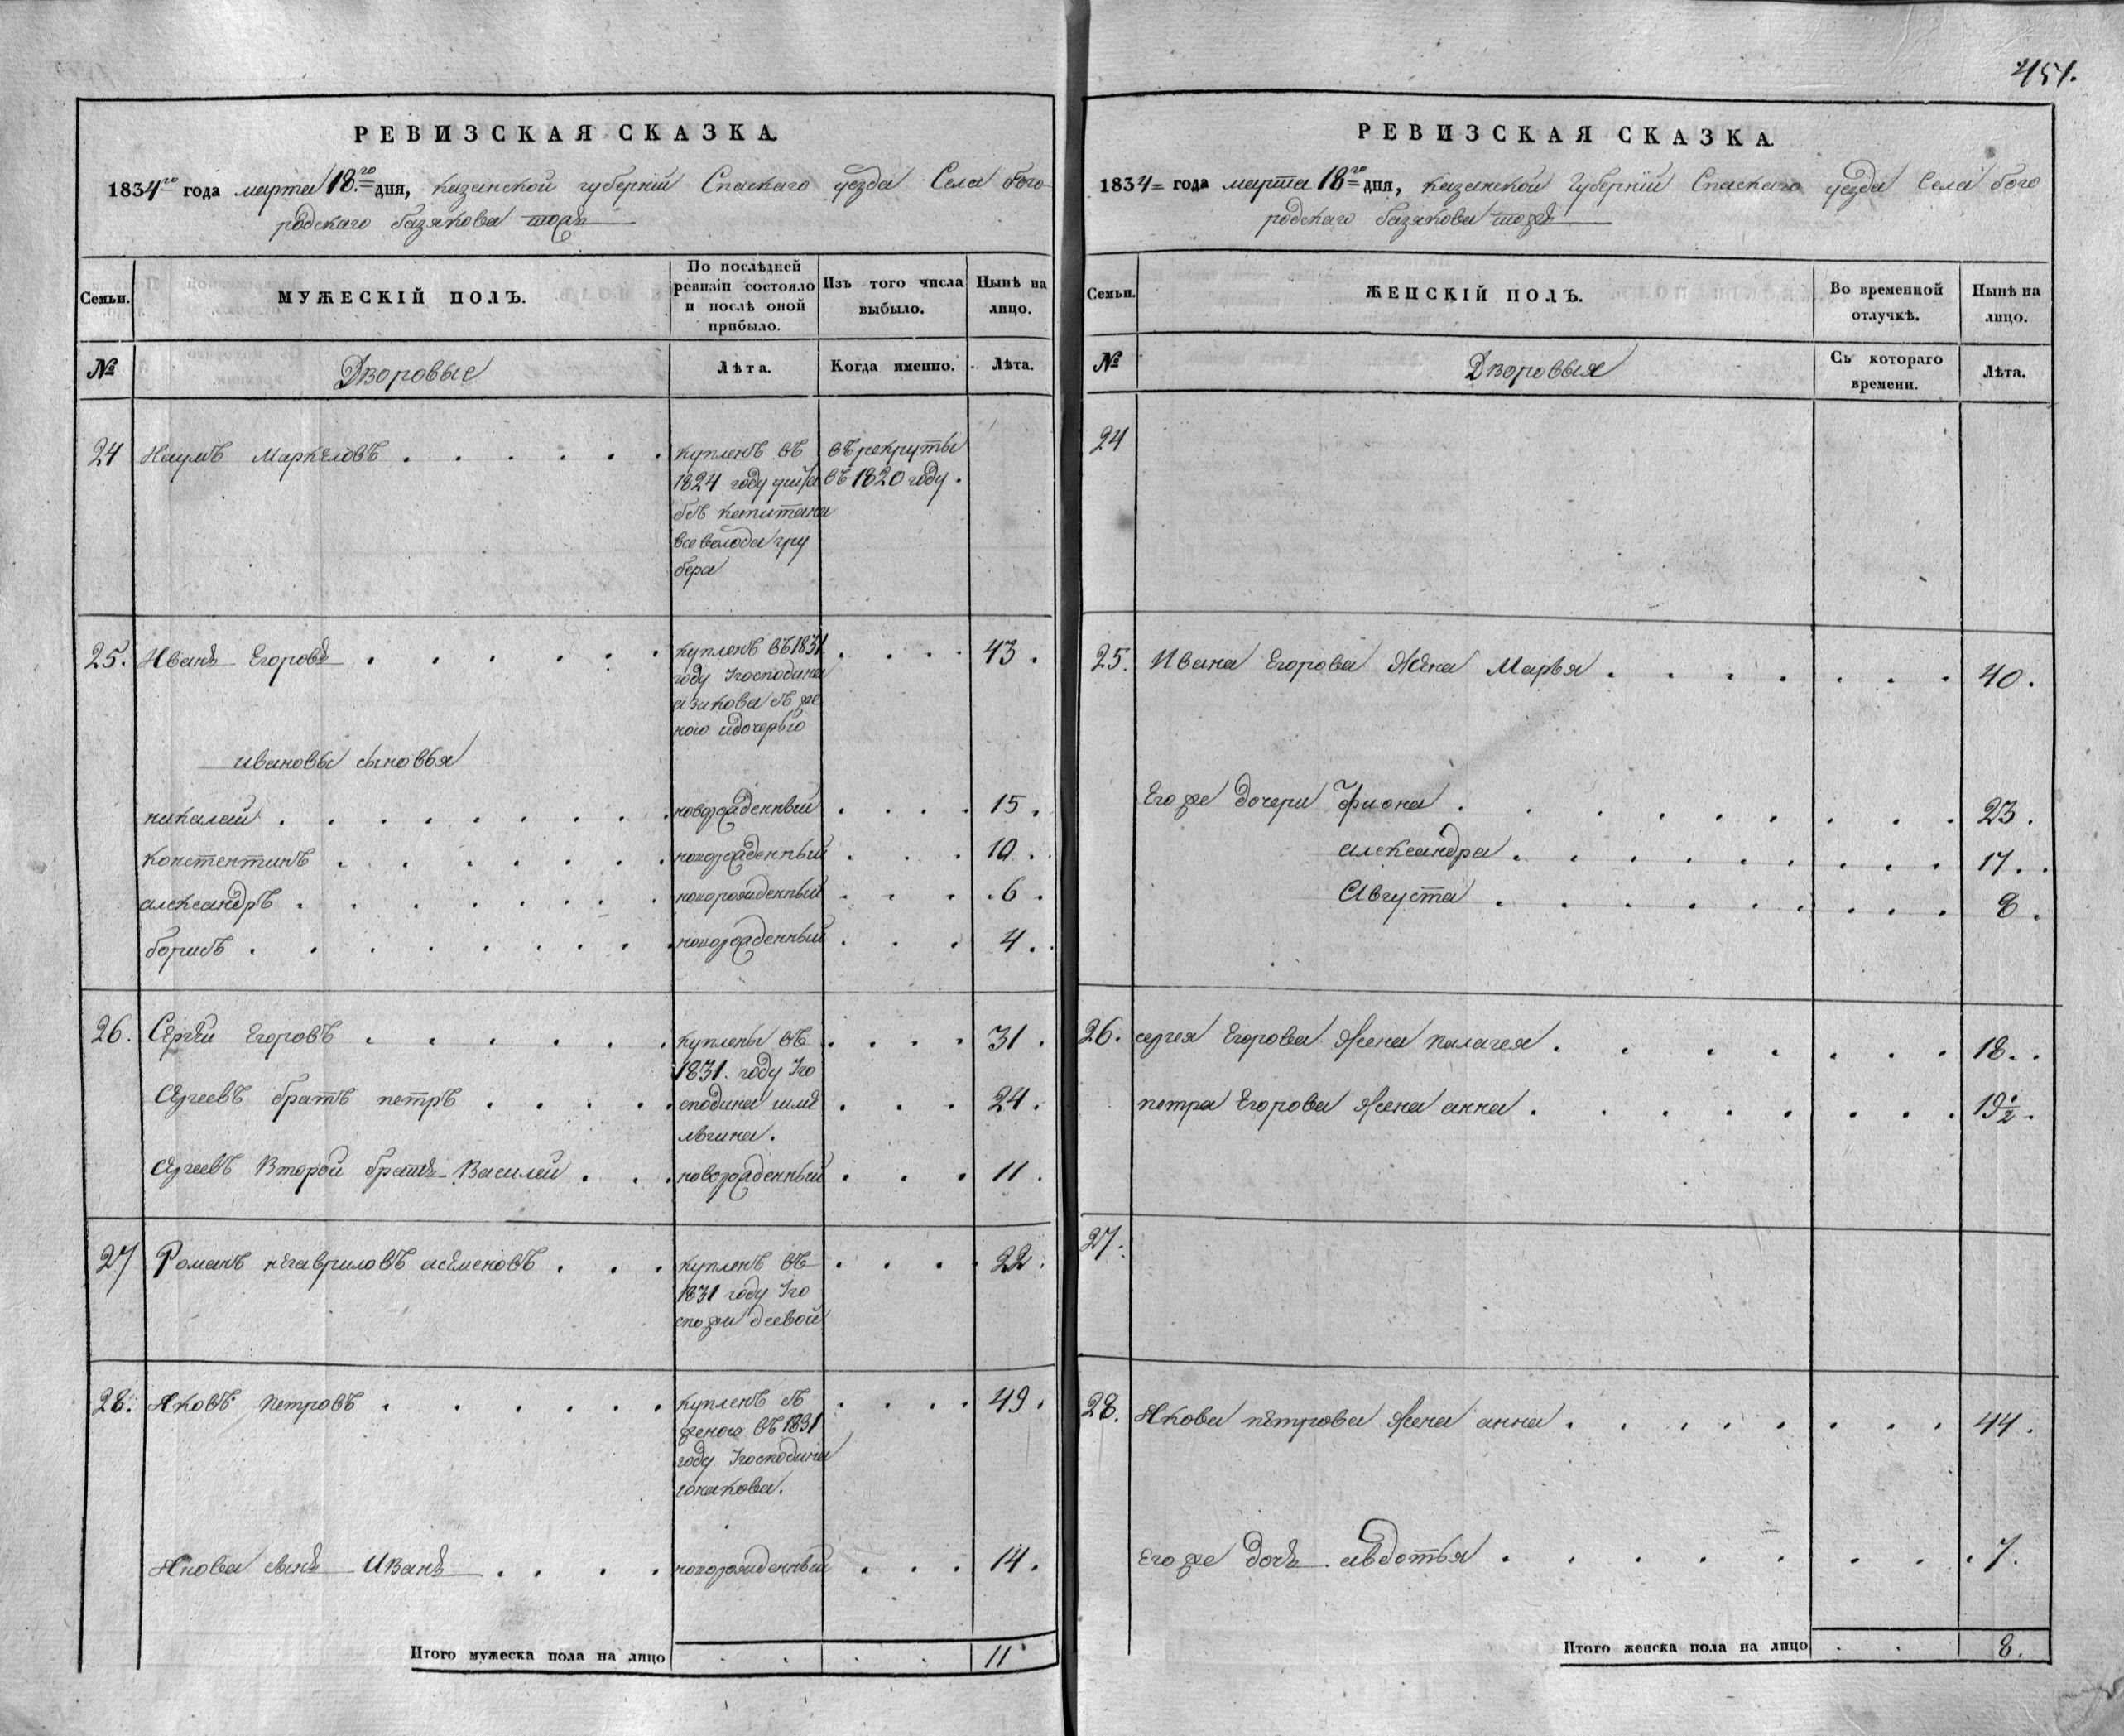 451.
РЕВИЗСКАЯ СКАЗКА.
1834го года марта 18.го дня, казанской губернии Спаскаго уезда Села бого
родскаго базякова тожъ
Семьи.
МУЖЕСКІЙ ПОЛЪ.
По послѣдней
ревизіи состояло
и послѣ оной
прибыло.
Изъ того числа
выбыло.
Нынѣ на
лицо.
№
Дворовые
Лѣта.
Когда именно.
Лѣта.
24 Наумъ Маркеловъ . . . . . . купленъ въ въ рекруты
1824 году въ 1820 году.
капитана
всеволода гру
бера
25. Иванъ Егоровъ . . . . . . купленъ въ 1831 . . . . 43.
году Господина
съ же
ною идочерью
ивановы сыновья
николай . . . . . . . . . новорожденный . . . . 15.
константинъ . . . . . . . новорожденный . . . 10.
александръ . . . . . . . новорожденный . . . 6.
борисъ . . . . . . . . новорожденный . . . 4.
26. Сергѣй Егоровъ . . . . . . куплены въ . . . . 31.
1831. году Уго
Сергеевъ братъ петръ . . . . сподина шмѣ . . . 24.
льгина.
Сергеевъ Второй братъ Василей . . . новорожденный . . . 11.
27 Романъ . . . купленъ въ . . . . 22.
1831 году Уго
спожи деевой
28. Яковъ петровъ . . . . . . купленъ съ . . . . 49.
женою въ 1831
году Господина
юнакова.
Якова сынъ Иванъ . . . . новорожденный . . . 14.
Итого мужеска пола на лицо . . . . 11
РЕВИЗСКАЯ СКАЗКА.
1834= года марта 18го дня, казанской Губернии Спаскаго уезда Села бого
родскаго базякова тожъ
Семьи.
ЖЕНСКІЙ ПОЛЪ.
Во временной
отлучкѣ.
Нынѣ на
лицо.
№
Дворовыя
Съ котораго
времени.
Лѣта.
24
25. Ивана Егорова жена Марья . . . . . . . 40.
Его же дочери Фиона . . . . . . . . . 23.
александра . . . . . . . . . 17.
Августа . . . . . . . . . 8.
26. сергея Егорова жена палагея . . . . . . . 18.
петра Егорова жена анна . . . . . . . . 19 1/2.
27.
28. Якова петрова жена анна . . . . . . . . 44.
Его же дочь авдотья . . . . . . . . . 7.
Итого женска пола на лицо . . 8.